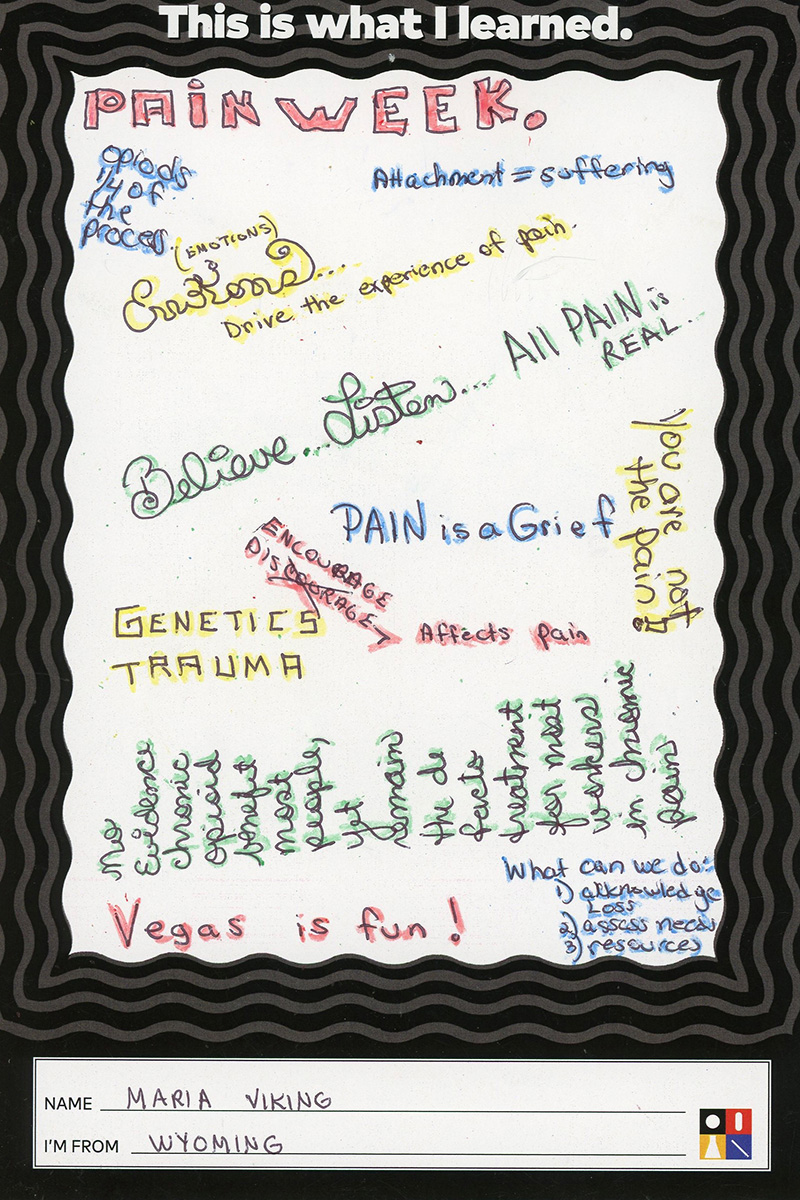 This is what I learned.
PAIN WEEK.
Opiods
1/4 of
the
process
Attachment = suffering
(EMOTIONS)
Emotions...
Drive the experience of pain.
Believe... Listen... All PAIN is
REAL.
You are not
the pain!
PAIN is a Grief
ENCOURAGE
DISCOURAGE
Affects pain
GENETICS
TRAUMA
No
Evidence
chronic
opioid
benefit
most
people,
yet
remain
the de
facto
treatment
for most
workers
in chronic
pain
Vegas is fun!
What can we do:
1) acknowledge
Loss
2) assess needs
3) resources
NAME MARIA VIKING
I'M FROM WYOMING